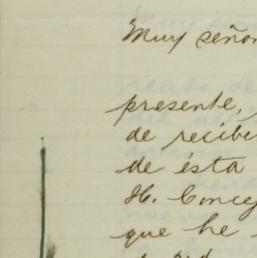 Muy señor
presente,
de recibi
de ésta
H. Concej
que he